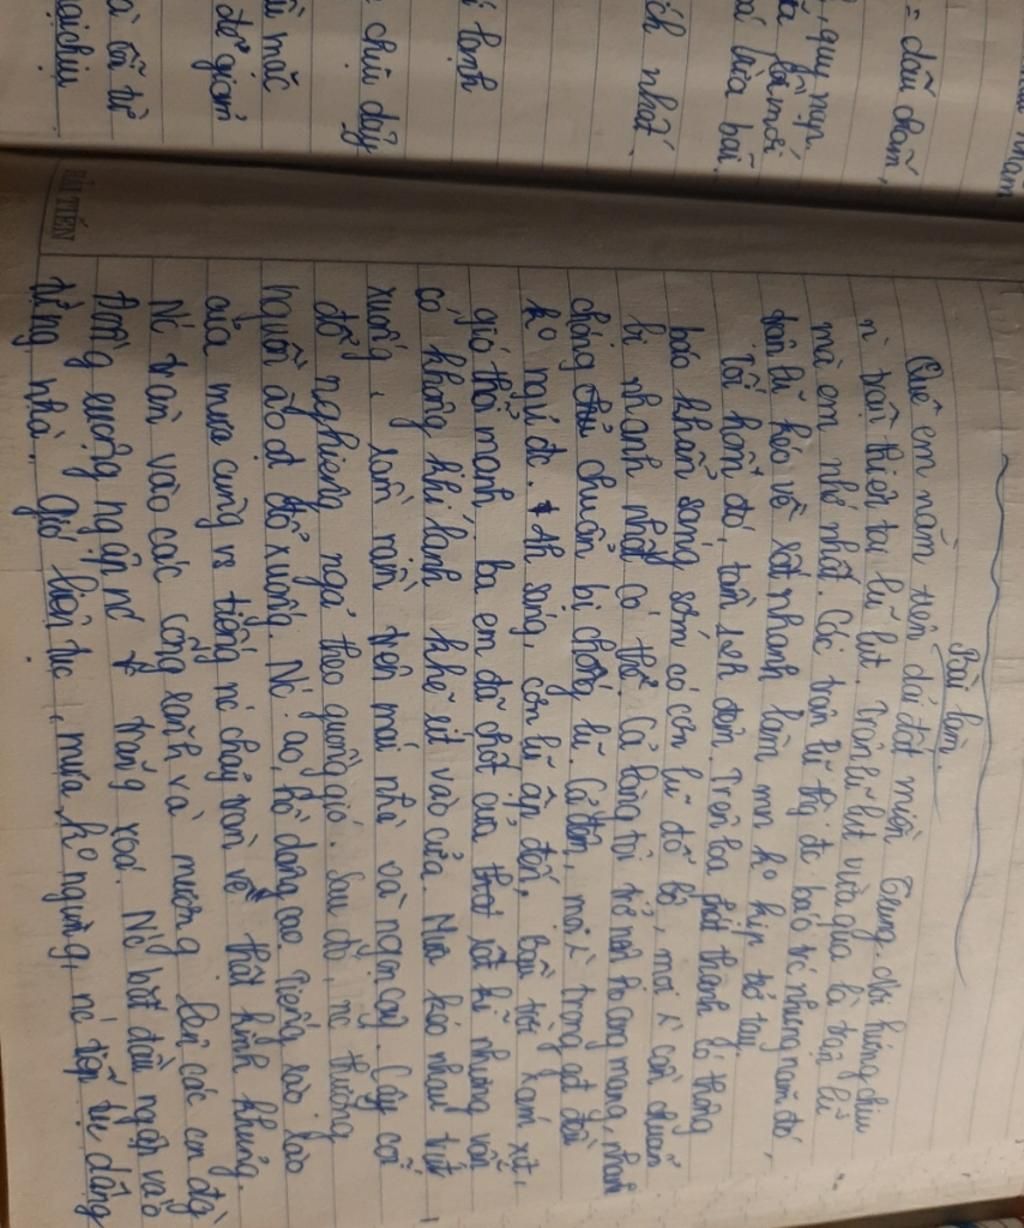 = dấu chấm,
, quy nạp,
lũa bài.
ích nhất.
í lạnh
chú dậy
ũ mặc
để giảm
à lũ từ
HẢI TIẾN
Bài làm.
Quê em nằm trên dải đất miền Trung. Nơi hứng chịu
n trận thiên tai lũ lụt. Trận lũ lụt vừa qua là trận lũ
mà em nhớ nhất. Các trận lũ thg đc báo trc nhưng năm đó,
trận lũ kéo về rất nhanh làm mn ko kịp trở tay.
Tối hôm đó, tầm 12h đêm. Trên loa phát thanh có thông
báo khẩn sáng sớm có cơn lũ đổ bộ, mọi ng cần chuẩn
bị nhanh nhất có thể. Cả làng tôi trở nên hoang mang, nhanh
chóng chuẩn bị chống lũ. Cả đêm, mọi ng trong gđ đều
ko ngủ đc. 4h sáng, cơn lũ ập đến, bầu trời xám xịt,
gió thổi mạnh, ba em đã chốt cửa thật kĩ nhưng vẫn
có không khí lạnh khẽ rít vào cửa. Mưa kéo nhau trút
xuống, rầm rầm trên mái nhà và ngọn cây. Cây cối
đổ nghiêng ngả theo guồng gió. Sau đó, nc thượng
nguồn ào ạt đổ xuống. Nc ao, hồ dâng cao. Tiếng rào rào
của mưa cùng vs tiếng nc chảy tràn về thật kinh khủng.
Nc tràn vào các cống rãnh và mương lên các con đg
Đồng ruộng ngập nc trắng xoá. Nc bắt đầu ngập vào
từng nhà. Gió liên tục, mưa ko ngừng, nc tiếp tục dâng